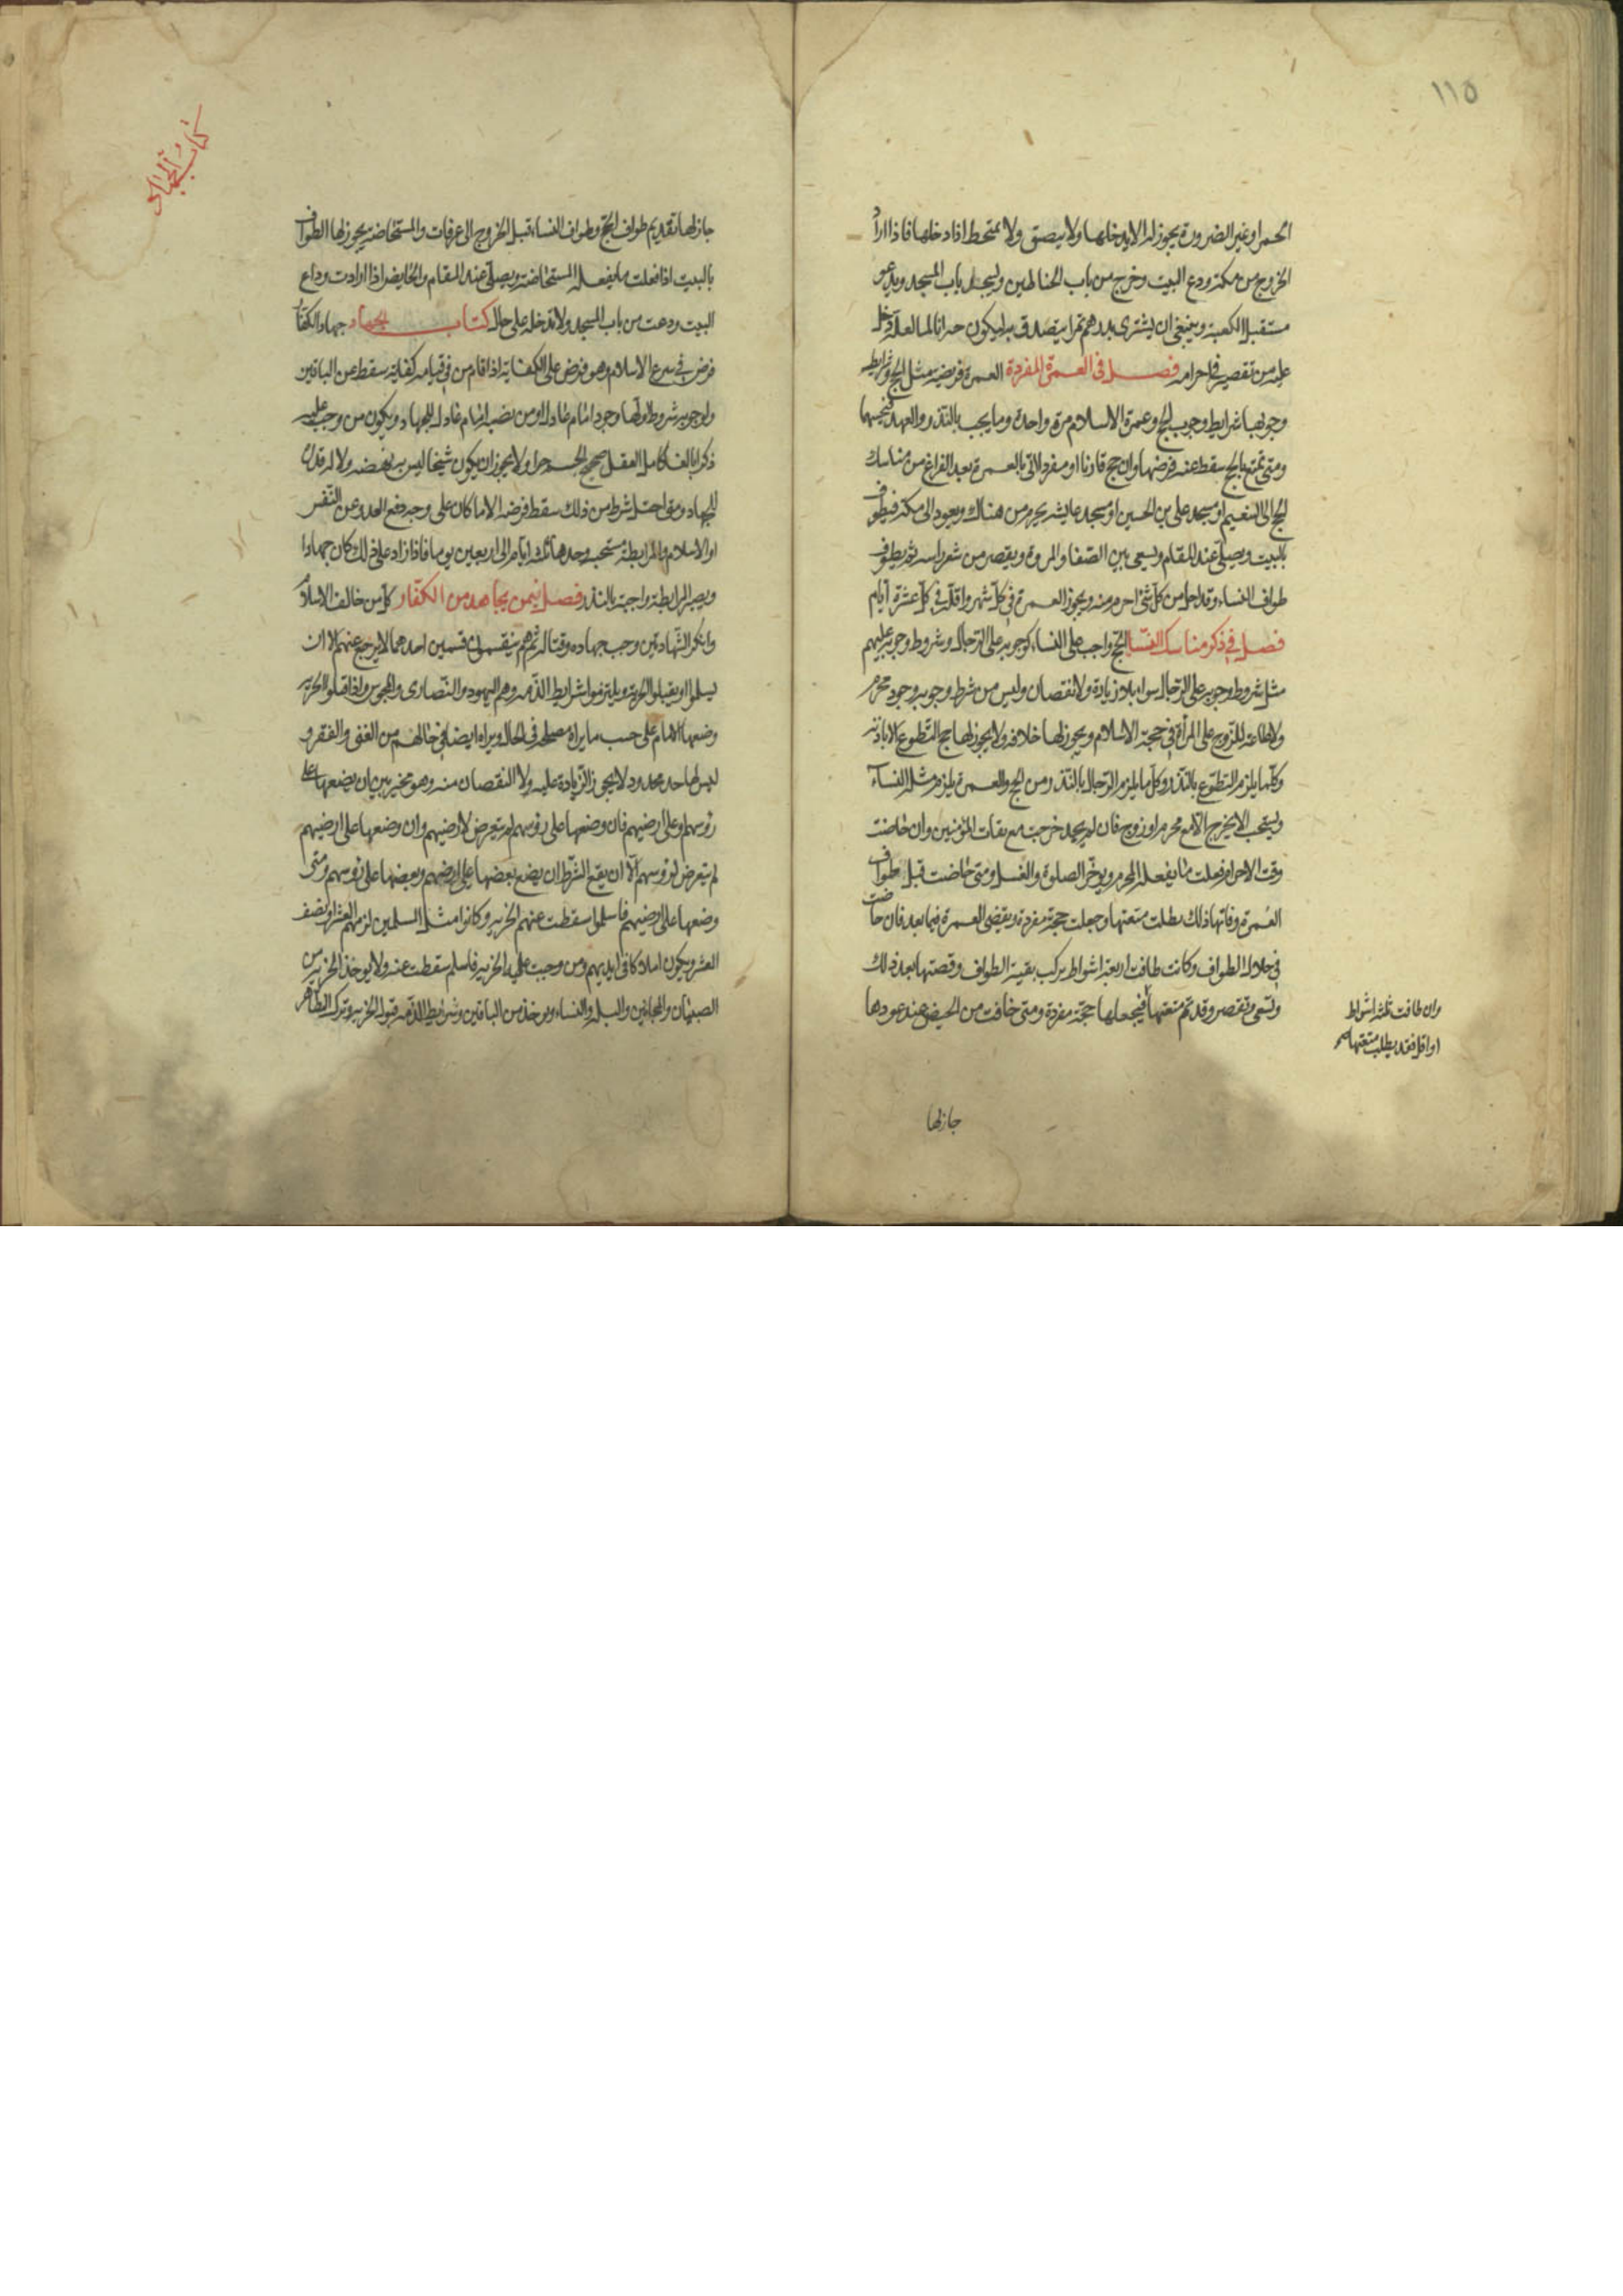 ١١٥
الحمراء وغير الضرورة يجوز له الا يدخلها ولا يبصق ولا يمتخط اذا دخلها فاذا اراد
الخروج من مكة ودع البيت وخرج من باب الحناطين وليسجد باب المسجد ويدعو
مستقبل الكعبة وينبغى ان يشترى بدرهم تمرا يتصدق به ليكون جبرانا لما لعله دخل
عليه من تقصير فى احرامه فصل فى العمرة المفردة العمرة فريضة مثل الحج وشرايط
وجوبها شرايط وجوب الحج وعمرة الاسلام مرة واحدة وما يجب بالنذر والعهد فبحسبهما
ومتى تمتع بالحج سقط عنه فرضها وان حج قارنا او مفردا اتى بالعمرة بعد الفراغ من مناسك
الحج الى التنعيم او مسجد على بن الحسين او مسجد عايشه يحرم من هناك ويعود الى مكة فيطوف
بالبيت ويصلى عند المقام ويسعى بين الصفا والمروة ويقصر من شعر راسه ثم يطوف
طواف النساء وقد احل من كل شئ احرم منه ويجوز العمرة فى كل شهر واقله فى كل عشرة ايام
فصل فى ذكر مناسك النساء الحج واجب على النساء كوجوبه على الرجال وشروط وجوبه عليهم
مثل شروط وجوبه على الرجال سواء بلا زيادة ولا نقصان وليس من شرط وجوبه وجود محرم
ولا طاعة للزوج على المرأة فى حجة الاسلام ويجوز لها خلافه ولا يجوز لها حج التطوع الا باذنه
وكلما يلزم التطوع بالنذر وكل ما يلزم الرجال بالنذر ومن الحج والعمرة يلزم مثله النساء
ويستحب الا يخرج الا مع محرم او زوج فان لم يجد خرجت مع ثقات المؤمنين وان حاضت
وقت الاحرام فعلت ما يفعله المحرم ويؤخر الصلوة والغسل ومتى حاضت قبل طواف
العمرة وفاتها ذلك بطلت متعتها وجعلت حجة مفردة ويقضى العمرة فيما بعد فان حاضت
فى خلال الطواف وكانت طافت اربعة اشواط تركت بقية الطواف وقضتها بعد ذلك
وتسعى وتقصر وقد تم متعتها فيجعلها حجة مفردة ومتى خافت من الحيض عند عودها
وان طافت ثلثة اشواط
او اقل فقد بطلت متعتها صح
جاز لها
كتاب الجهاد
جاز لها تقديم طواف الحج وطواف النساء قبل الخروج الى عرفات والمستحاضة يجوز لها الطواف
بالبيت اذا فعلت ما يفعله المستحاضة ويصلى عند المقام والحايض اذا ارادت وداع
البيت ودعت من باب المسجد ولا تدخله على حال كتاب الجهاد جهاد الكفار
فرض فى شرع الاسلام وهو فرض على الكفاية اذا قام من فى قيامه كفاية سقط عن الباقين
ولوجوبه شروط اولها وجود امام عادل او من نصبه امام عادل للجهاد ويكون من وجب عليه
ذكرا بالغا كامل العقل صحيح الجسم حرا ولا يجوز ان يكون شيخا ليس به نهضه ولا له قدرة
للجهاد ومتى اختل شرط من ذلك سقط فرضه الا ما كان على وجه دفع العدو عن النفس
او الاسلام والمرابطة مستحبه وحدها ثلثة ايام الى اربعين يوما فاذا زاد على ذلك كان جهادا
ويصير المرابطة واجبة بالنذر فصل فيمن يجاهد من الكفار كل من خالف الاسلام
وانكر الشهادتين وجب جهاده وقتاله ثم هم ينقسمون قسمين احدهما لا يرجع عنهم الا ان
يسلموا او يقبلوا الجزية ويلتزموا شرايط الذمه وهم اليهود والنصارى والمجوس واذا قبلوا الجزيه
وضعها الامام على حسب ما يراه مصلحة فى الحال ويراه ايضا فى حالهم من الغنى والفقر و
ليس لها حد محدود لا يجوز الزيادة عليه ولا النقصان منه وهو مخير بين ان يضعها على
رؤسهم او على ارضيهم فان وضعها على رؤسهم لم يتعرض لارضيهم وان وضعها على ارضيهم
لم يتعرض لرؤسهم الا ان يقع الشرط ان يضع بعضها على ارضيهم وبعضها على رؤسهم ومتى
وضعها على ارضيهم فاسلموا سقطت عنهم الجزيه وكانوا مثل المسلمين لزمهم العشر او نصف
العشر ويكون املاكا فى ايديهم ومن وجبت عليه الجزيه فاسلم سقطت عنه ولا يوخذ الجزيه من
الصبيان والمجانين والبله والنساء ويوخذ من الباقين وشرايط الذمه قبول الجزيه وترك التظاهر